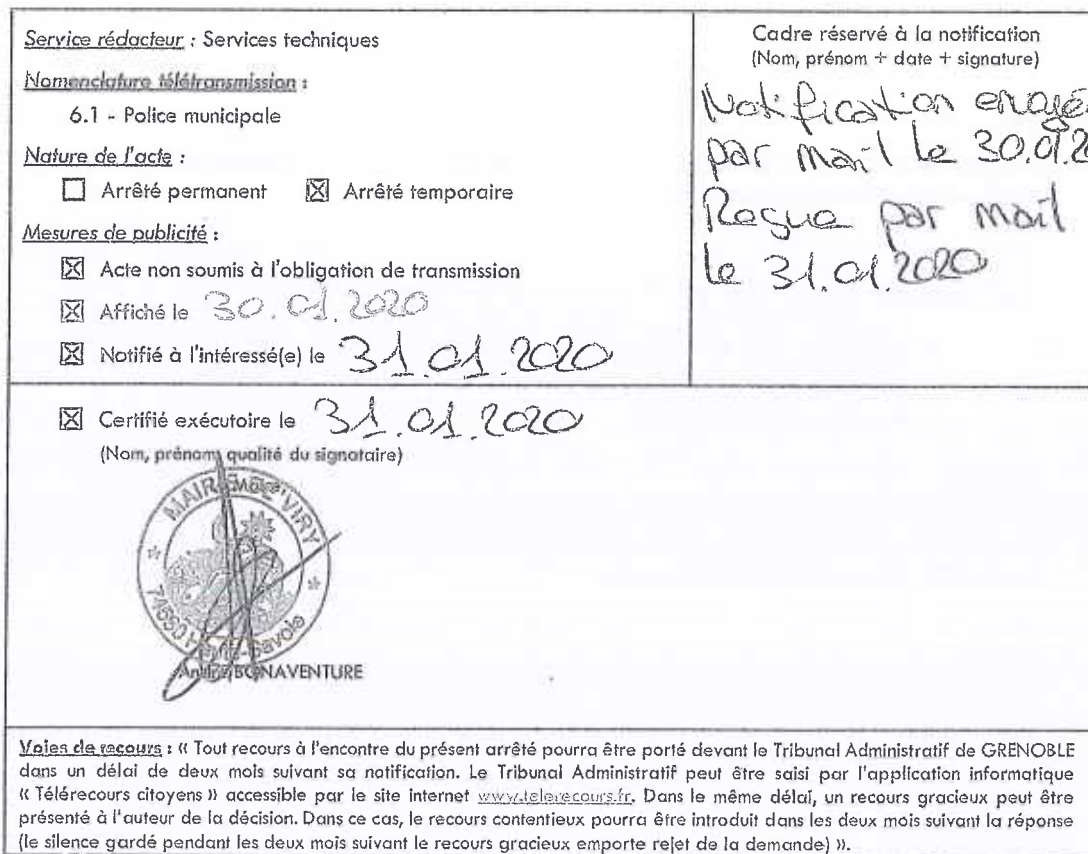 Service rédacteur : Services techniques
Nomenclature télétransmission :
6.1 - Police municipale
Nature de l'acte :
☐ Arrêté permanent ☒ Arrêté temporaire
Mesures de publicité :
☒ Acte non soumis à l'obligation de transmission
☒ Affiché le 30.01.2020
☒ Notifié à l'intéressé(e) le 31.01.2020
Cadre réservé à la notification
(Nom, prénom + date + signature)
Notification
par mail le 30.01.20
par mail
le 31.01.2020
☒ Certifié exécutoire le 31.01.2020
(Nom, prénom, qualité du signataire)
MAIRIE DE VIRY
74580 Haute-Savoie
André BONAVENTURE
Voies de recours : « Tout recours à l'encontre du présent arrêté pourra être porté devant le Tribunal Administratif de GRENOBLE
dans un délai de deux mois suivant sa notification. Le Tribunal Administratif peut être saisi par l'application informatique
« Télérecours citoyens » accessible par le site internet www.telerecours.fr. Dans le même délai, un recours gracieux peut être
présenté à l'auteur de la décision. Dans ce cas, le recours contentieux pourra être introduit dans les deux mois suivant la réponse
(le silence gardé pendant les deux mois suivant le recours gracieux emporte rejet de la demande) ».